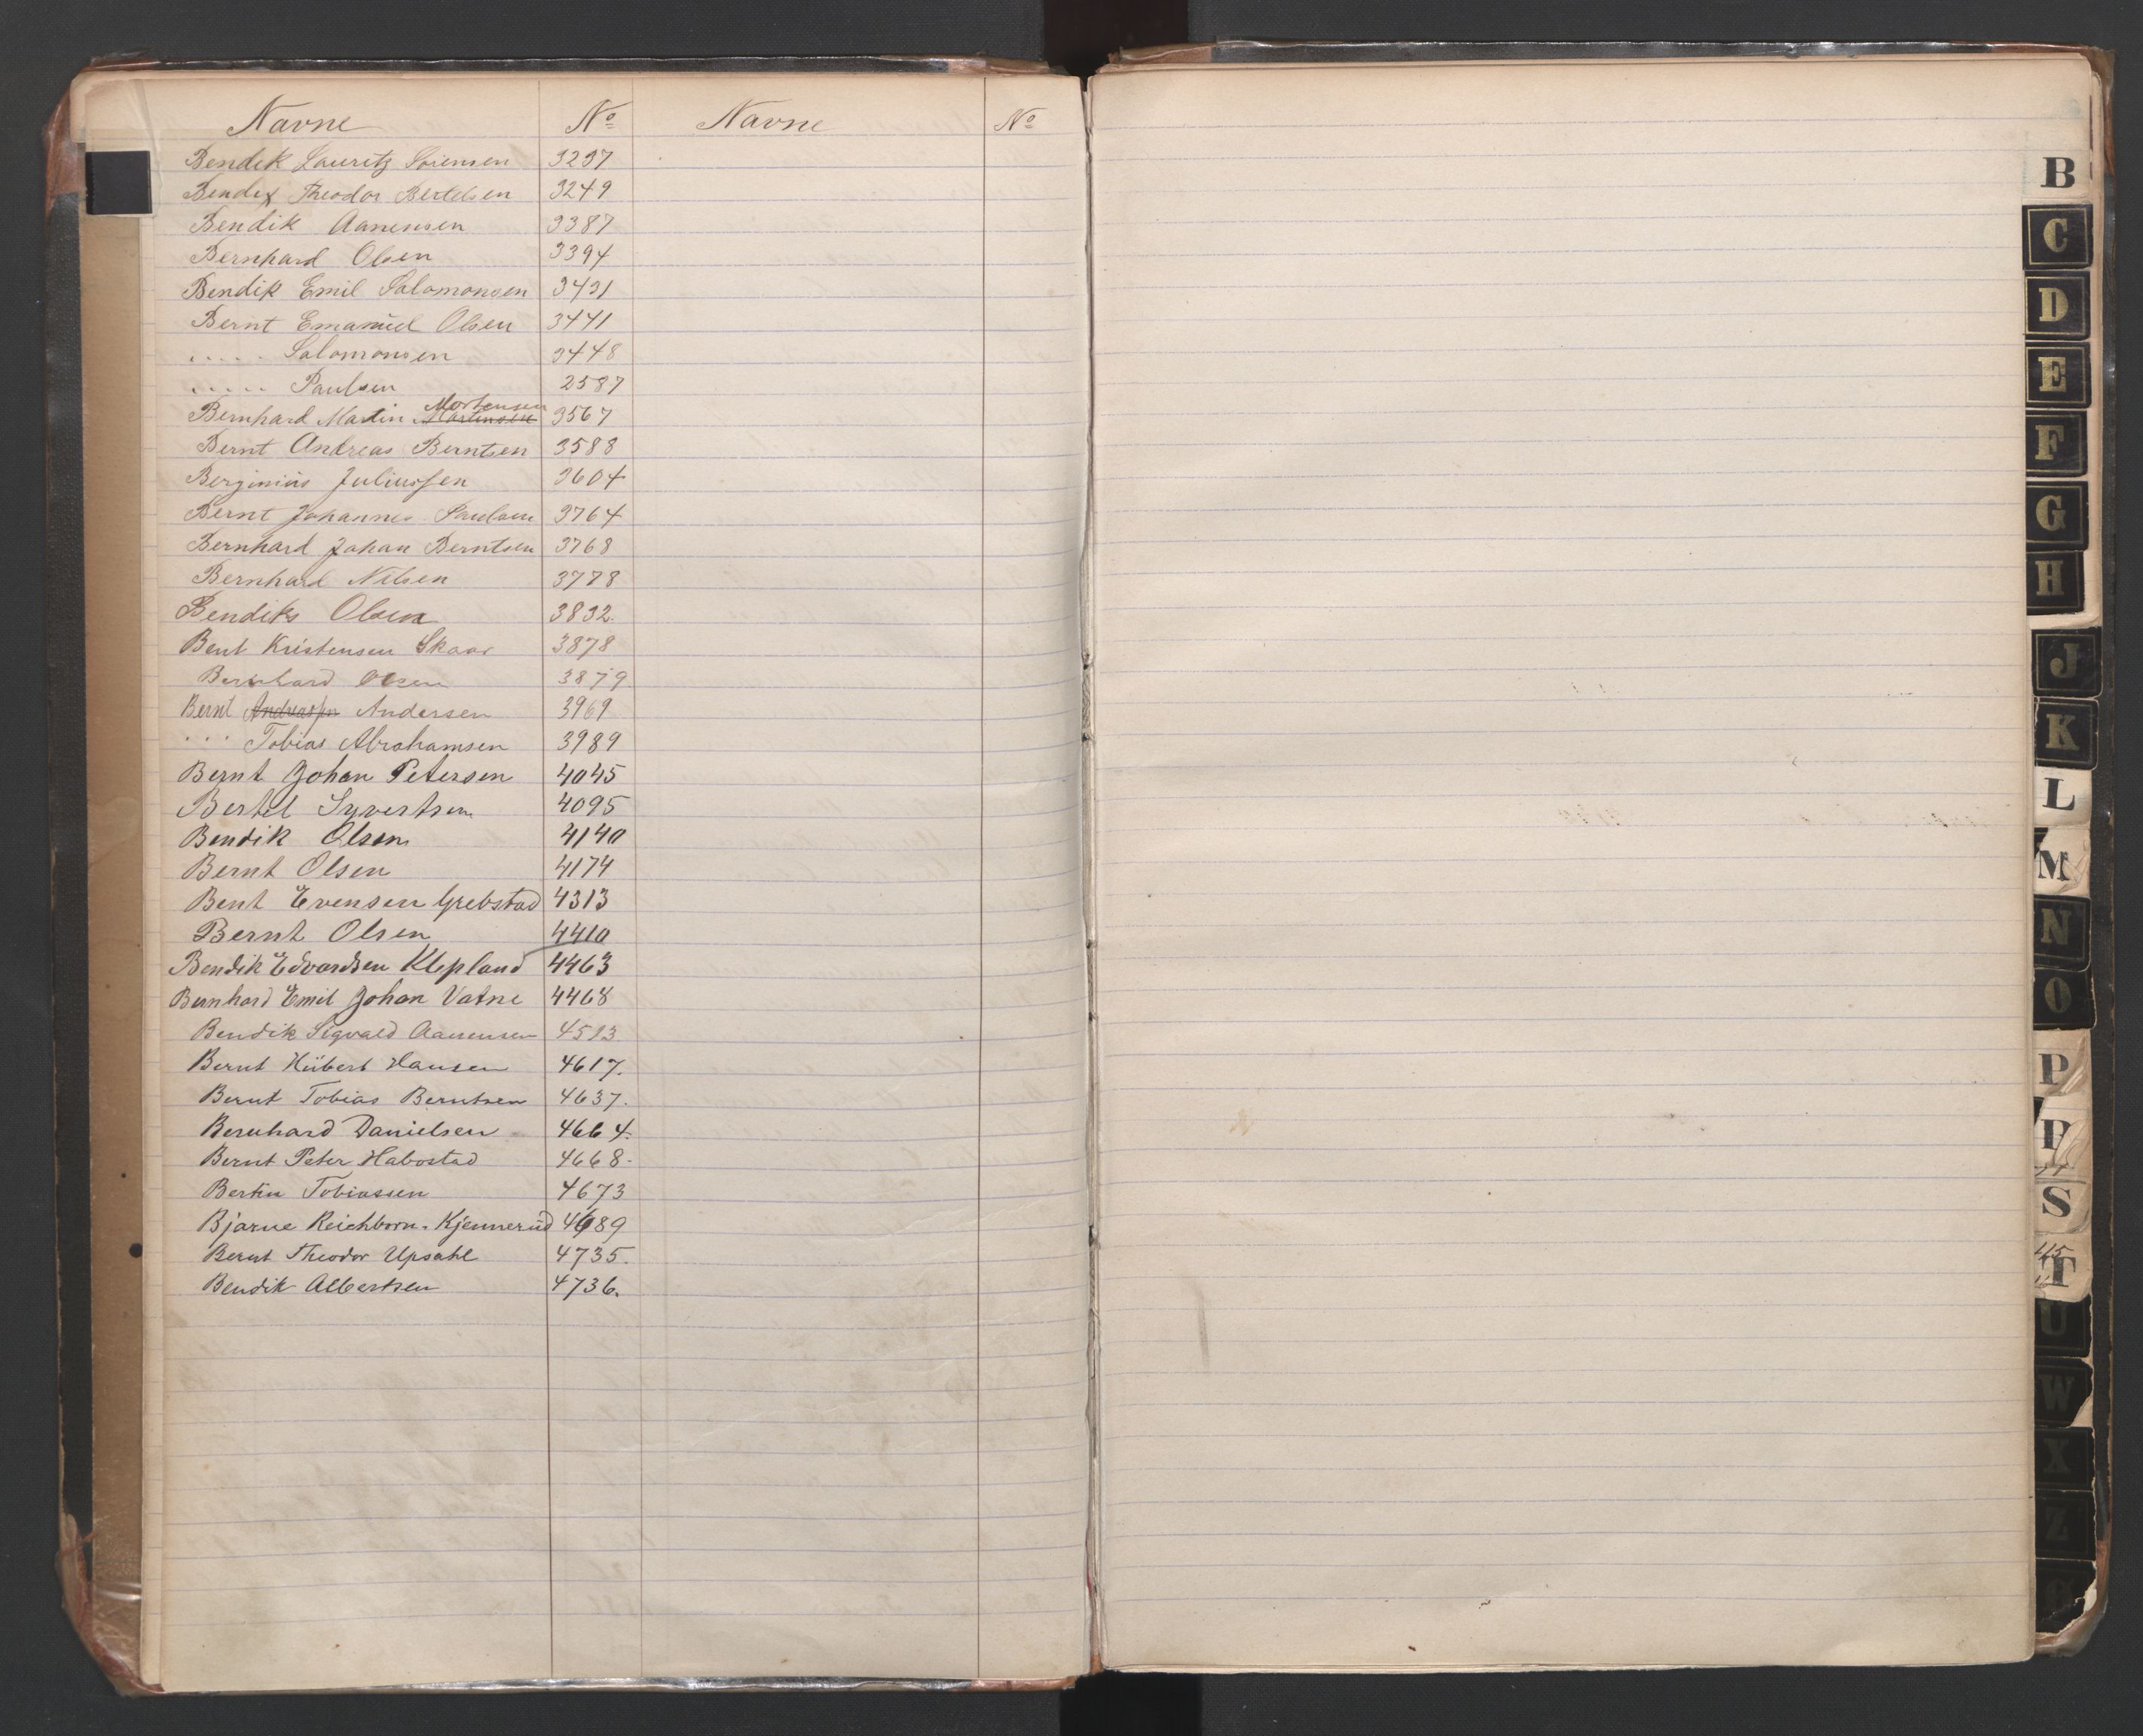 Navne No Navne No
Bendik Lauritz Sörensen 3237
Bendix Theodor Bertelsen 3249
Bendik Aanensen 3387
Bernhard Olsen 3394
Bendik Emil Salomonsen 3431
Bernt Emanuel Olsen 3441
..... Salomonsen 3448
..... Paulsen 2587
Bernhard Martin Martinsen Mortensen 3567
Bernt Andreas Berntsen 3588
Berginius Juliussen 3604
Bernt Johannes Paulsen 3764
Bernhard Johan Berntsen 3768
Bernhard Nilsen 3778
Bendiks Olsen 3832.
Bent Kristensen Skaar 3878
Bernhard Olsen 3879
Bernt Andreassen Andersen 3969
... Tobias Abrahamsen 3989
Bernt Johan Petersen 4045
Bertel Syvertsen 4095
Bendik Olsen 4140
Bernt Olsen 4174
Bent Evensen Grebstad 4313
Bernt Olsen 4410
Bendik Edvardsen Klepland 4463
Bernhard Emil Johan Vatne 4468
Bendik Sigvald Aanensen 4513
Bernt Hübert Hansen 4617.
Bernt Tobias Berntsen 4637.
Bernhard Danielsen 4664.
Bernt Peter Habostad 4668.
Bertin Tobiassen 4673
Bjarne Reichborn-Kjennerud 4689
Bernt Theodor Upsahl 4735.
Bendik Albertsen 4736.
B
C
D
E
F
G
H
J
K
L
M
N
O
P
S
T
U
W
X
Z